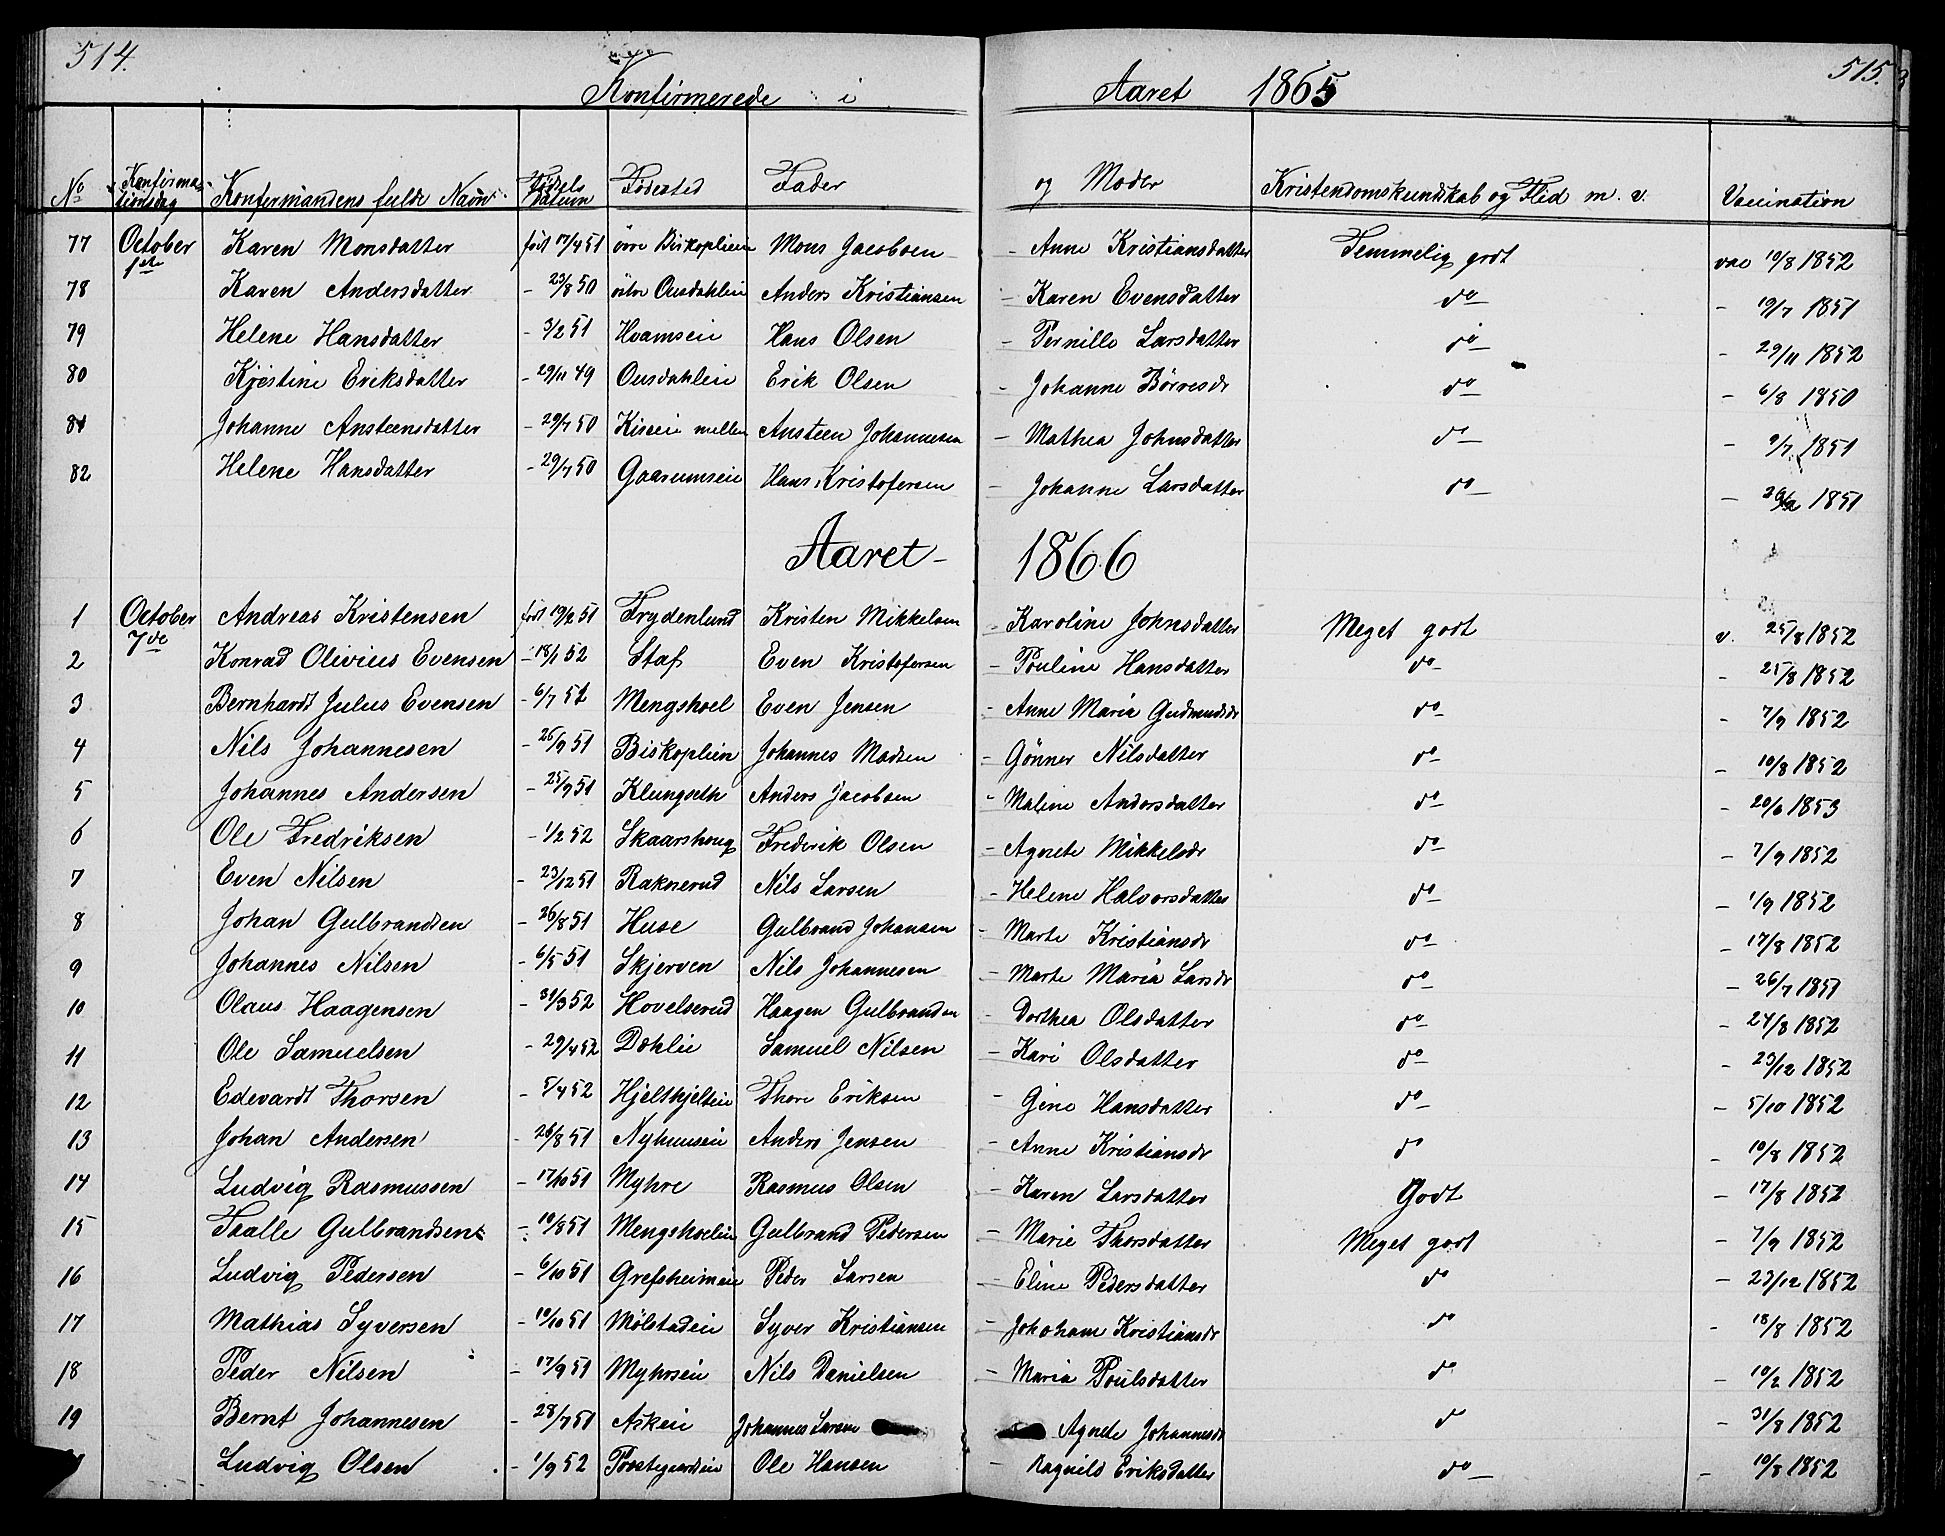 514. 515.
Konfirmerede i Aaret 1865
No Konfirmationsdag Konfirmandens fulde Navn Fødels Datum Fødested Fader og Moder Kristendomskundskab og Flid m. v. Vaccination
77 October 1ste Karen Monsdatter født 17/4 51 övre Biskoplien Mons Jacobsen - Anne Kristiansdatter Temmelig godt vac 10/8 1852
78 Karen Andersdatter - 23/8 50 Anders Kristiansen - Karen Evensdatter do - 19/7 1851
79 Helene Hansdatter - 3/2 51 Hvamseie Hans Olsen - Pernille Larsdatter do - 29/11 1852
80 Kjestine Eriksdatter - 29/11 49 Ousdahleie Erik Olsen - Johanne Börresdr do - 6/8 1850
81 Johanne Ansteensdatter - 29/7 50 Kiseeie mellem Ansteen Johannesen - Mathea Johnsdatter do - 9/7 1851
82 Helene Hansdatter - 29/7 50 Gaarumseie Hans Kristofersen - Johanne Larsdatter do - 1851
Aaret - 1866
1 October 7de Andreas Kristensen født 19/2 51 Frydenlund Kristen Mikkelsen - Karoline Johnsdatter Meget godt v. 25/8 1852
2 Konrad Olivius Evensen - 18/1 52 Staf Even Kristofersen - Pouline Hansdatter do - 25/8 1852
3 Bernhardt Julius Evensen - 6/7 52 Mengshoel Even Jensen - Anne Maria Gudmundsdr do - 7/9 1852
4 Nils Johannesen - 26/9 51 Biskoplien Johannes Madsen - Gönner Nilsdatter do - 10/8 1852
5 Johannes Andersen - 25/9 51 Klungseth Anders Jacobsen - Maline Andersdatter do - 20/6 1853
6 Ole Fredriksen - 1/2 52 Skaarshoug Frederik Olsen - Agnete Mikkelsdr do - 7/9 1852
7 Even Nilsen - 23/12 51 Raknerud Nils Larsen - Helene Halvorsdatter do - 1/9 1852
8 Johan Gulbrandsen - 26/8 51 Huse Gulbrand Johansen - Marte Kristiansdr do - 17/8 1852
9 Johannes Nilsen - 6/5 51 Skjerven Nils Johannesen - Marte Maria Larsdr do - 26/7 1851
10 Olaus Haagensen - 31/3 52 Hovelsrud Haagen Gulbrandsen - Dorthea Olsdatter do - 24/8 1852
11 Ole Samuelsen - 29/4 52 Dæhlie Samuel Nilsen - Kari Olsdatter do - 23/12 1852
12 Edevardt Thorsen - 5/4 52 Hjelthjelseie Thore Eriksen - Gine Hansdatter do - 5/10 1852
13 Johan Andersen - 26/8 51 Nyhuuseie Anders Jensen - Anne Kristiansdr do - 10/8 1852
14 Ludvig Rasmussen - 17/10 51 Myhre Rasmus Olsen - Karen Larsdatter Godt - 17/8 1852
15 Thalle Gulbrandsen - 10/8 51 Mengshoeleie Gulbrand Pedersen - Marie Thorsdatter Meget godt - 7/9 1852
16 Ludvig Pedersen - 6/10 51 Grefsheimeie Peder Larsen - Eline Pedersdatter do - 23/12 1852
17 Mathias Syversen - 10/10 51 Mölstadeie Syver Kristiansen - Johohane Kristiansdr do - 18/8 1852
18 Peder Nilsen - 17/9 51 Myhrseie Nils Danielsen - Maria Poulsdatter do - 10/2 1852
19 Bernt Johannesen - 28/7 51 Askeie Johannes Larsen Agnete Johannesdr do - 31/8 1852
Ludvig Olsen - 1/9 52 Præstegaardseie Ole Hansen - Ragnild Eriksdatter do - 10/8 1852